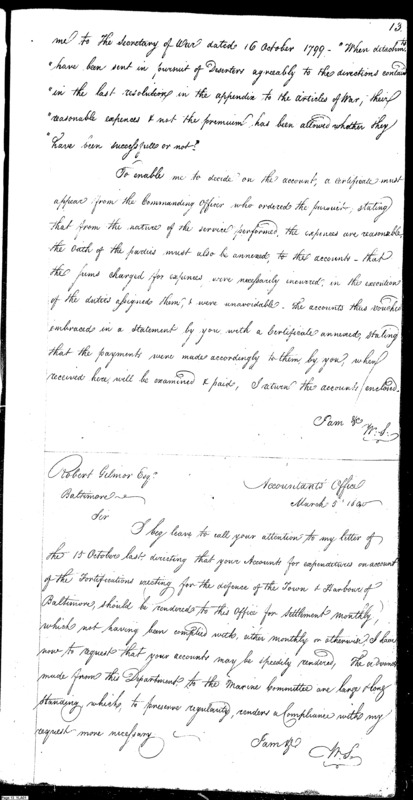 13.
me to the Secretary of War dated 16 October 1799 - "When detachmts
"have been sent in pursuit of Deserters agreeably to the directions contained
"in the last resolution in the appendix to the articles of War, their
"reasonable expences & not the premium has been allowed whether they
"have been successful or not."
To enable me to decide on the account, a certificate must
appear from the Commanding Officer who ordered the pursuit, stating
that from the nature of the service performed, the expences are reasonable,
the Oath of the parties must also be annexed, to the accounts - that
the sums charged for expences were necessarily incurred, in the execution
of the duties assigned them, & were unavoidable. The accounts thus vouched
embraced in a statement by you with a Certificate annexed, stating
that the payments were made accordingly to them by you, when
received here, will be examined & paid, I return the accounts enclosed.
I am &c
W. S.
Robert Gilmor Esqr.
Accountants Office
Baltimore
March 5 1800
Sir
I beg leave to call your attention to my letter of
the 15 October last, directing that your Accounts for expenditures on account
of the Fortifications erecting for the defence of the Town & Harbour of
Baltimore, should be rendered to this Office for Settlement monthly,
which not having been complied with, either monthly or otherwise, I have
now to request that your accounts may be speedily rendered. The advances
made from this Department to the Marine Committee are large & long
standing, which, to preserve regularity, renders a Compliance with my
request more necessary
I am &c
W. S.